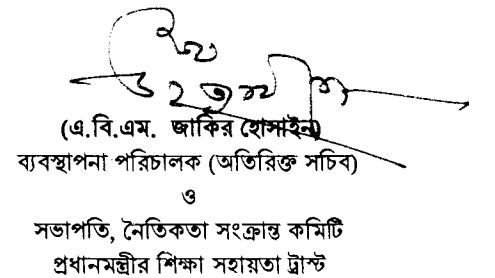 (এ.বি.এম. জাকির হোসাইন)
ব্যবস্থাপনা পরিচালক (অতিরিক্ত সচিব)
ও
সভাপতি, নৈতিকতা সংক্রান্ত কমিটি
প্রধানমন্ত্রীর শিক্ষা সহায়তা ট্রাস্ট